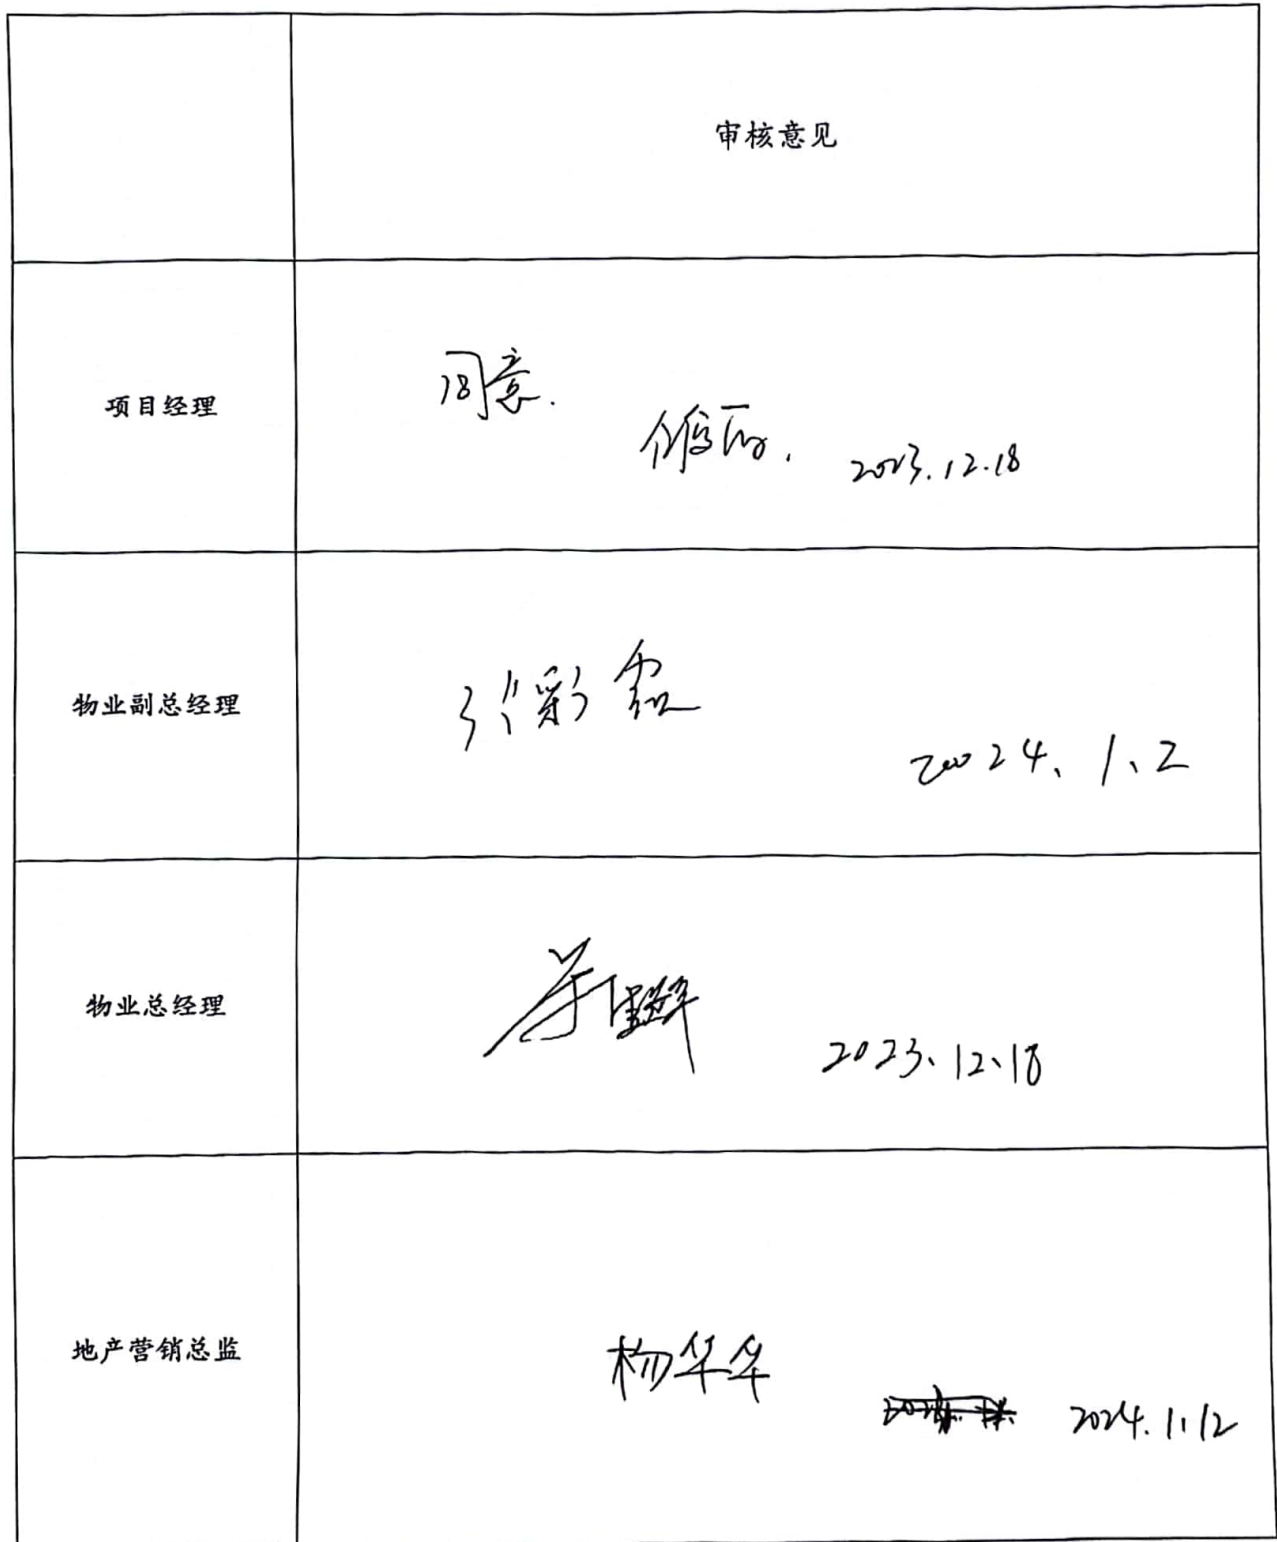 审核意见
项目经理
同意.
2023.12.18
物业副总经理
2024、1、2
物业总经理
2023、12、18
地产营销总监
杨华华
2024.1.12